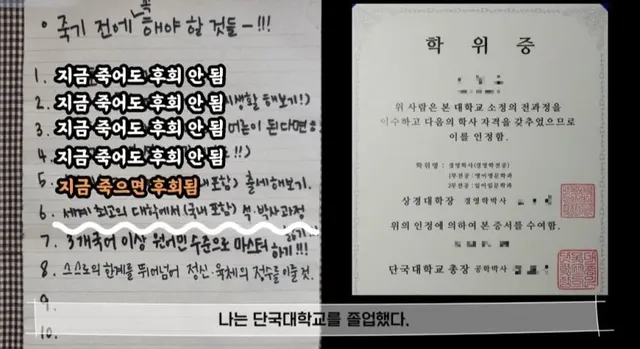 죽기 전에 꼭 해야 할 것들-!!!
1. 지금 죽어도 후회 안 됨
2. 지금 죽어도 후회 안 됨 생활 해보기!)
3. 지금 죽어도 후회 안 됨 어른이 된다면
4. 지금 죽어도 후회 안 됨 !!)
5. 지금 죽으면 후회됨 내 포함) 출세해보기.
6. 세계 최고의 대학에서 (국내 포함) 석·박사 과정
7. 3개국어 이상 원어민 수준으로 마스터 하기!!!
8. 스스로의 한계를 뛰어넘어 정신·육체의 정수를 이룰 것.
9.
10.
학위증
위 사람은 본 대학교 소정의 전과정을
이수하고 다음의 학사 자격을 갖추었으므로
이를 인정함.
학위명 : 경영학사(경영학전공)
1부전공 : 영어영문학과
2부전공 : 일어일문학과
상경대학장 경영학박사
위의 인정에 의하여 본 증서를 수여함.
단국대학교 총장 공학박사
나는 단국대학교를 졸업했다.